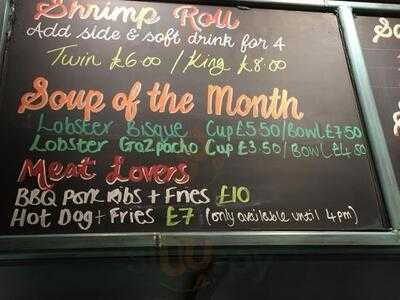 Shrimp Roll
Add side & soft drink for 4
Twin £6.00 / King £8.00
Soup of the Month
Lobster Bisque Cup £5.50/Bowl £7.50
Lobster Gazpacho Cup £3.50/Bowl £4.50
Meat Lovers
BBQ Pork Ribs + Fries £10
Hot Dog + Fries £7 (only available until 4pm)